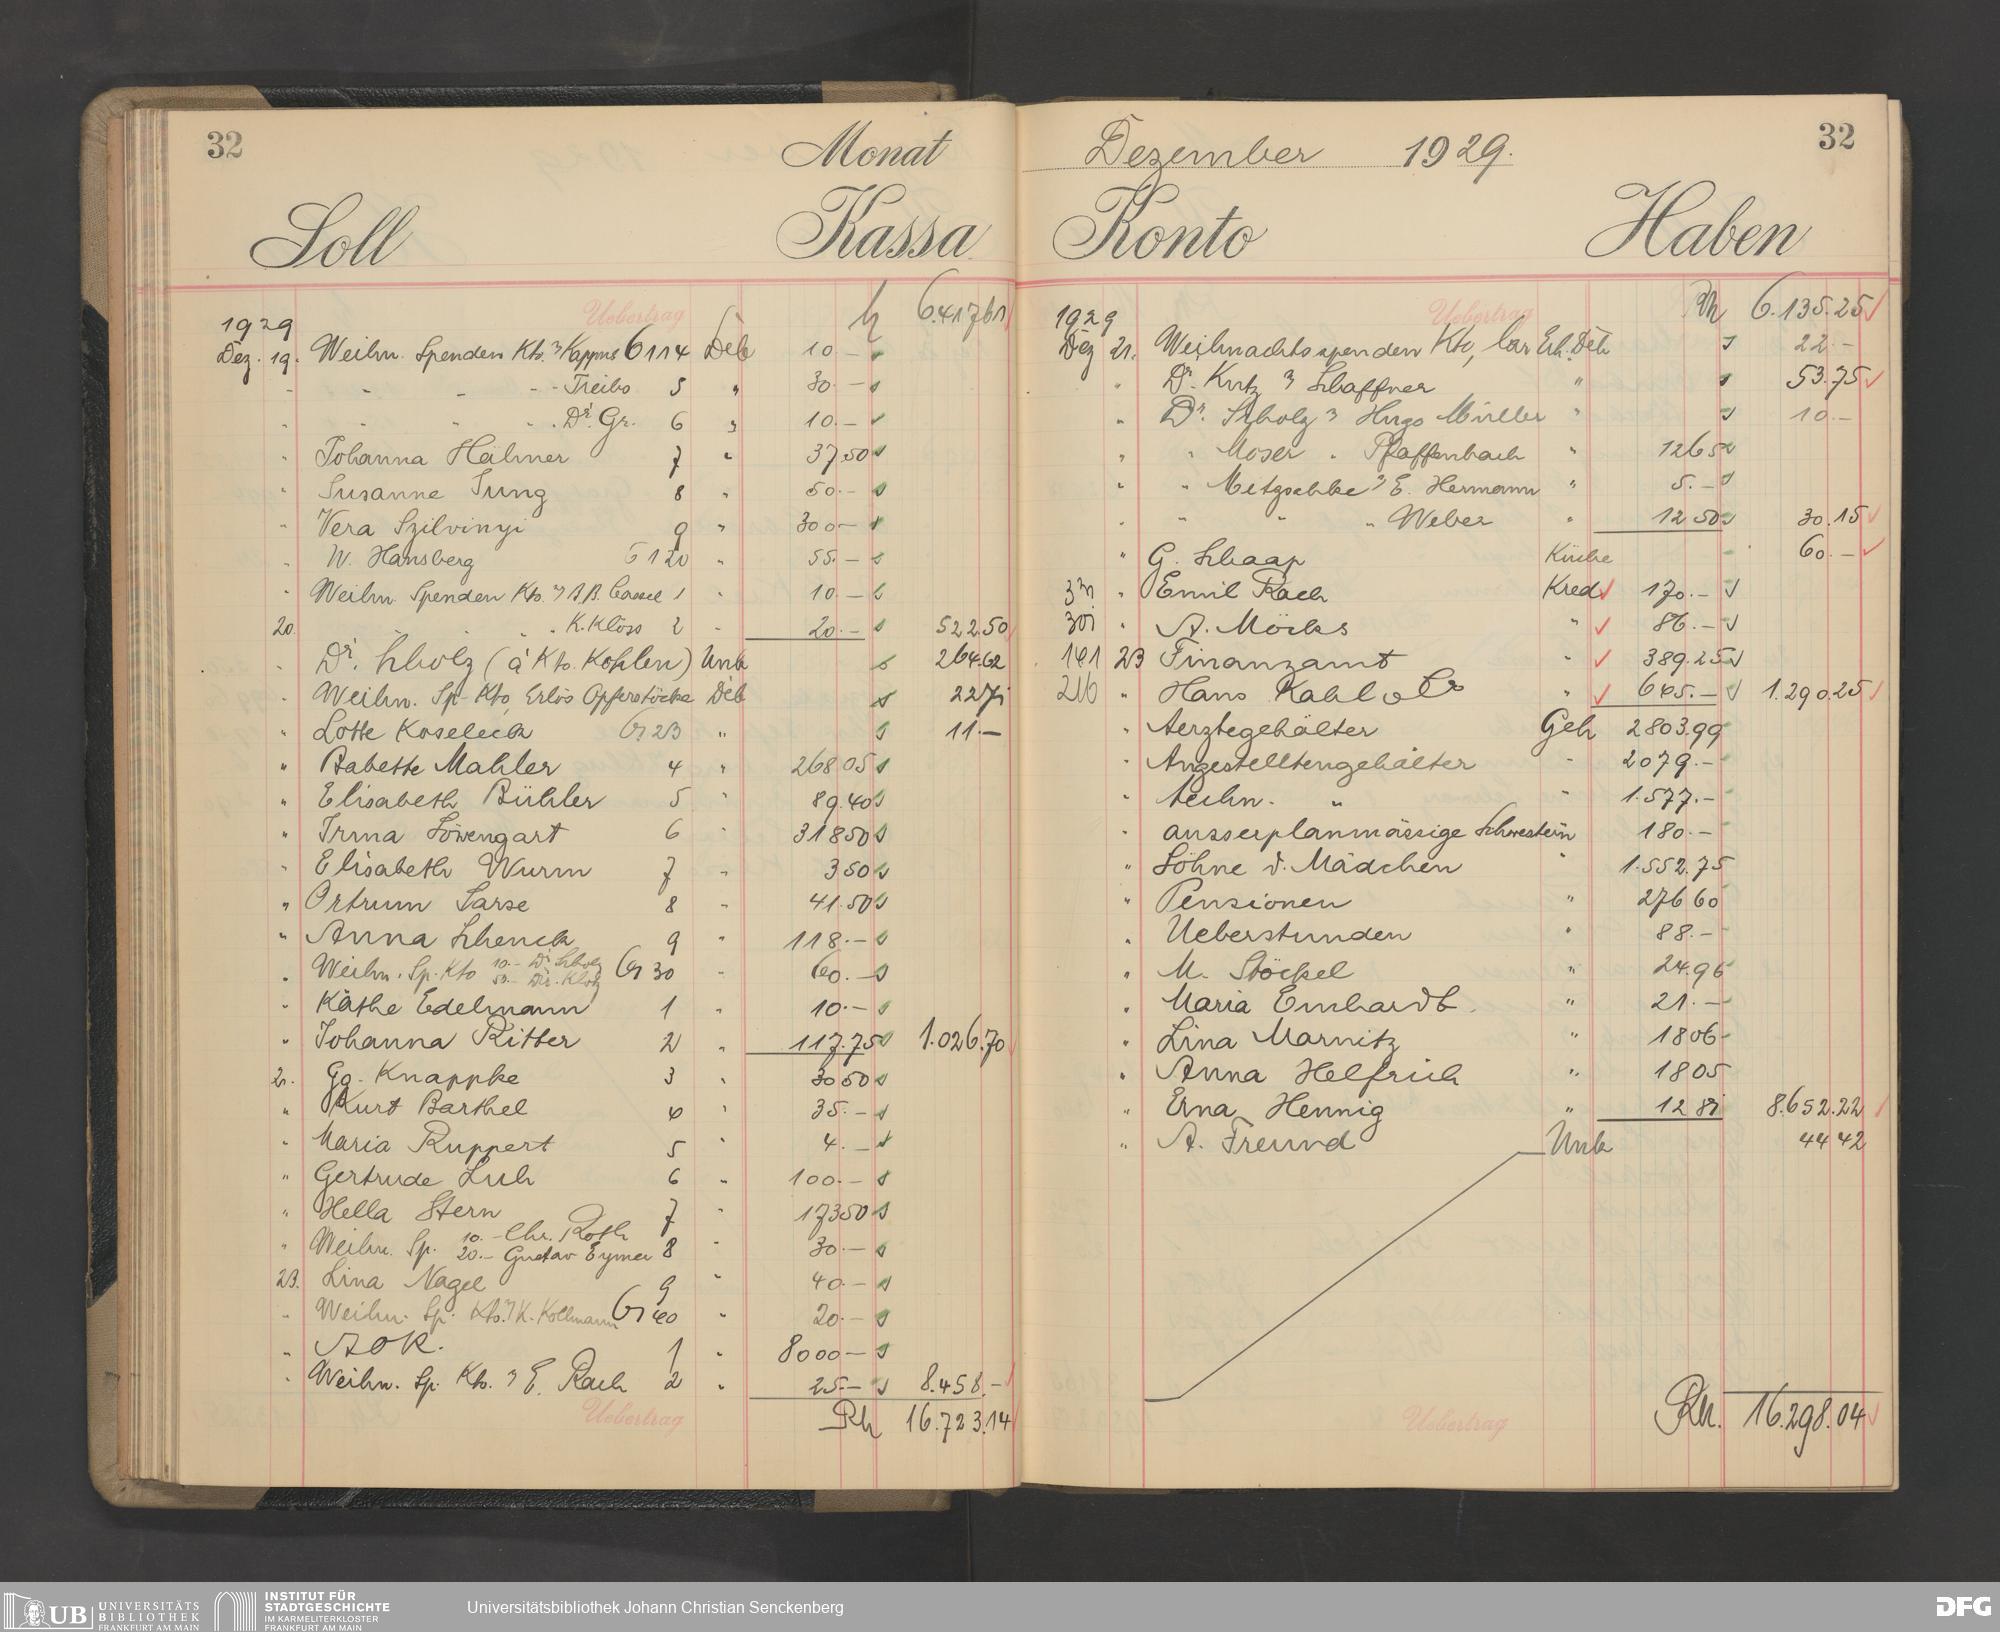 32 Monat
Soll Kassa
Uebertrag 6.417.61
1929
Dez. 19. Weihn. Spenden Kto. Kappus 6114 Deb 10.—
" " " Treibs 5 " 30.—
" " " Dr. Gr. 6 " 10.—
" Johanna Hähner 7 " 37.50
" Susanne Jung 8 " 50.—
" Vera Szilvinyi 9 " 300.—
" W. Hansberg 6120 " 55.—
" Weihn. Spenden Kto. A.B. Cassel 1 " 10.—
20. " " K. Klöss 2 " 20.— 522.50
" Dr. Scholz (à Kto. Kohlen) Unk 264.62
" Weihn. Sp. Kto, Erlös Opferstöcke Deb 22.71
" Lotte Koseleck 6123 " 11.—
" Babette Mahler 4 " 268.05
" Elisabeth Bühler 5 " 89.40
" Irma Löwengart 6 " 318.50
" Elisabeth Wurm 7 " 3.50
" Ortrun Sarse 8 " 41.50
" Anna Schenck 9 " 118.—
" Weihn. Sp. Kto 10.— Dr. Scholz 50.— Dir. Klotz 6130 " 60.—
" Käthe Edelmann 1 " 10.—
" Johanna Ritter 2 " 117.75 1.026.70
21. Gg. Knappke 3 " 30.50
" Kurt Barthel 4 " 35.—
" Maria Ruppert 5 " 4.—
" Gertrude Luh 6 " 100.—
" Hella Stern 7 " 173.50
" Weihn. Sp. 10.— Chr. Roth 20.— Gustav Eymer 8 " 30.—
23. Lina Nagel 9 " 40.—
" Weihn. Sp. Kto. K. Kollmann 6140 " 20.—
" AOK. 1 " 8000.—
" Weihn. Sp. Kto. E. Rach 2 " 25.— 8.458.—
Uebertrag Rh 16.723.14
Dezember 1929. 32
Konto Haben
Uebertrag Rh 6.135.25
1929
Dez 21. Weihnachtsspenden Kto, Erh. Deb 22.—
" Dr. Kutz Schaffner " 53.75
" Dr. Scholz Hugo Müller " 10.—
" " Moser " Pfaffenbach " 12.65
" " Metzschke E. Hermann " 5.—
" " " " Weber " 12.50 30.15
" G. Schaap Küche 60.—
" Emil Rach Kred 170.—
301 " A. Möcks " 86.—
161 23 Finanzamt " 389.25
216 " Hans Kahl " 645.— 1.290.25
" Aerztegehälter Geh 2803.99
" Angestelltengehälter " 2079.—
" techn. " " 1.577.—
" ausserplanmässige Schwestern 180.—
" Löhne d. Mädchen " 1.552.75
" Pensionen " 276.60
" Ueberstunden " 88.—
" M. Stöckel " 24.96
" Maria Emhardt " 21.—
" Lina Marnitz " 18.06
" Anna Helfrich " 18.05
" Erna Hennig " 12.81 8.652.22
" A. Freund Unk 44.42
Uebertrag Rh. 16.298.04
UB UNIVERSITÄTS BIBLIOTHEK FRANKFURT AM MAIN
INSTITUT FÜR STADTGESCHICHTE IM KARMELITERKLOSTER FRANKFURT AM MAIN
Universitätsbibliothek Johann Christian Senckenberg
DFG